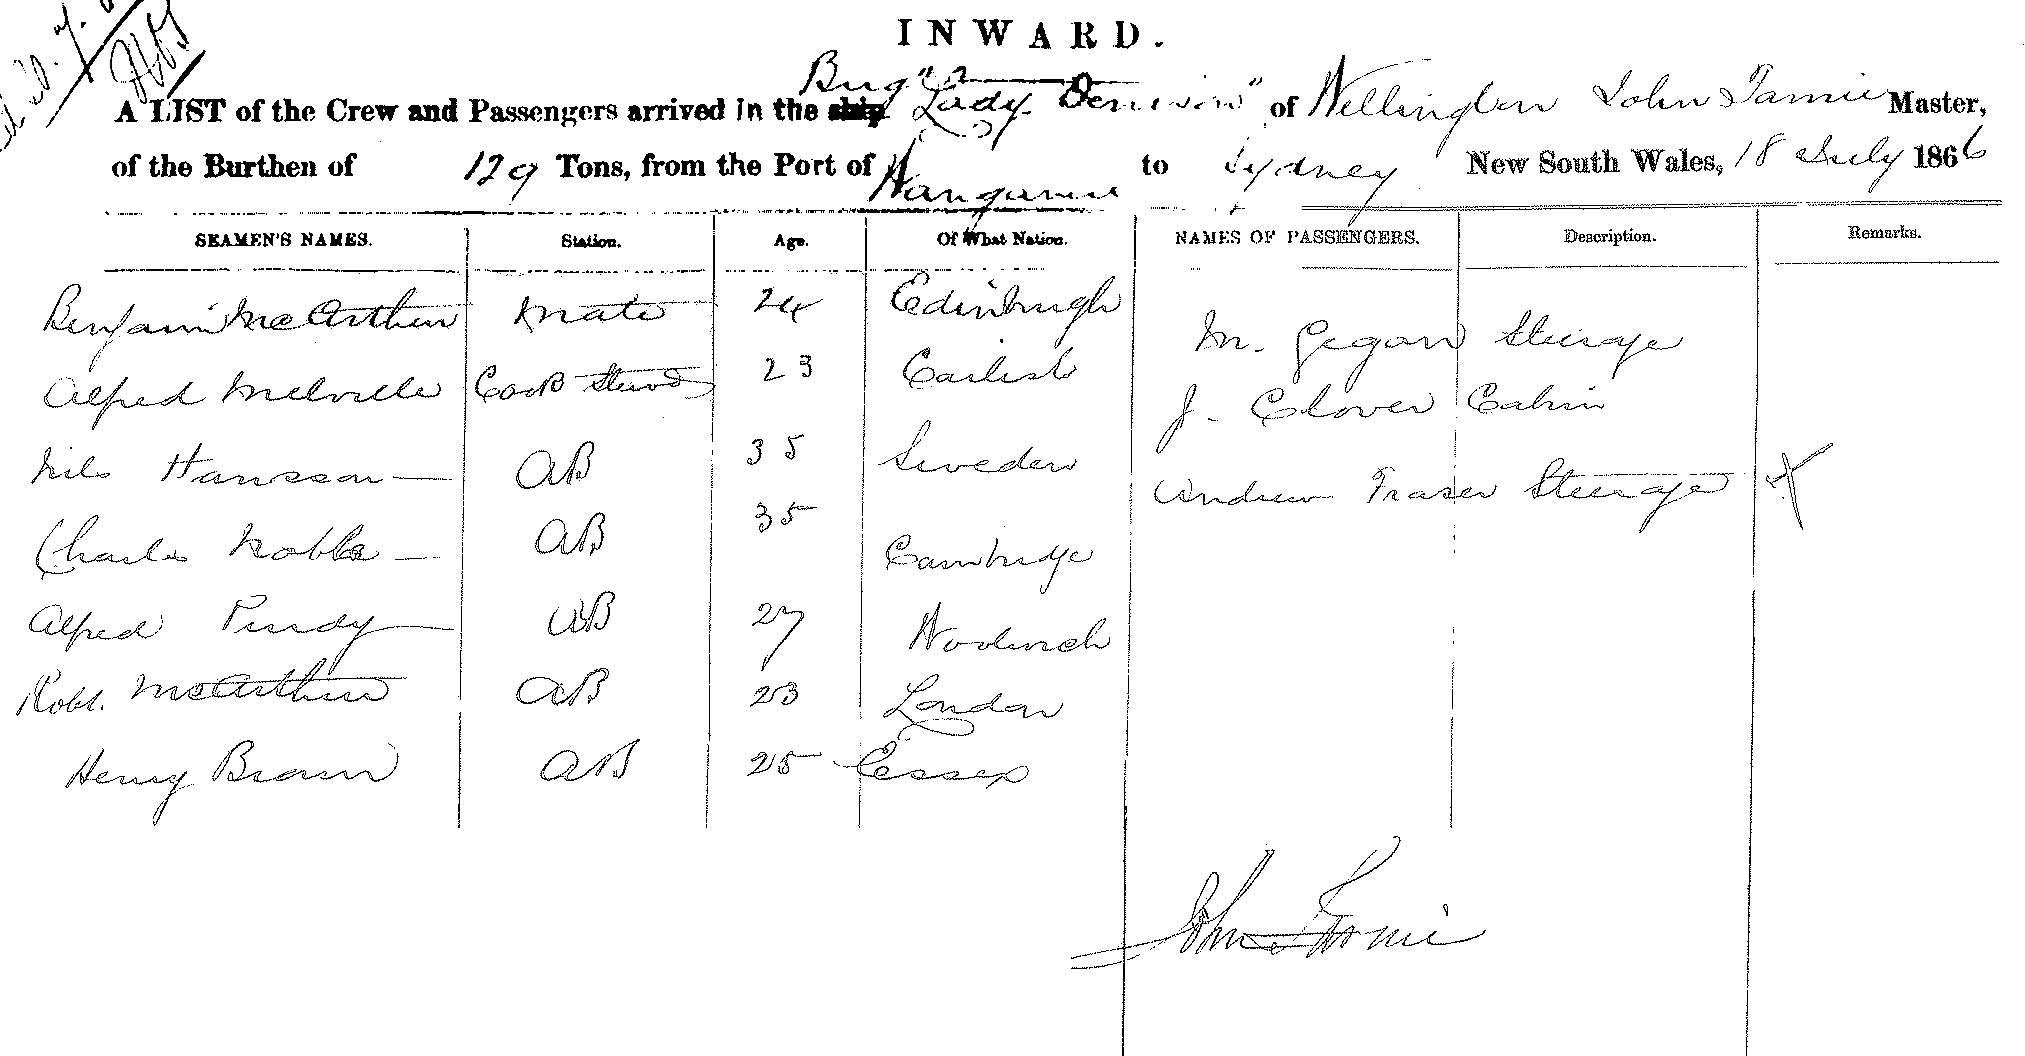 INWARD.
A LIST of the Crew and Passengers arrived in the ship Brig "Lady Denison" of Wellington John Jamie Master,
of the Burthen of 129 Tons, from the Port of Wanganui to Sydney New South Wales, 18 July 1866
SEAMEN'S NAMES. Station. Age. Of What Nation. NAMES OF PASSENGERS. Description. Remarks.
Benjamin McArthur Mate 24 Edinburgh
M. Gegan Steerage
Alfred Melville Cook Stewd 23 Carlisle
J. Glover Cabin
Nils Hansson AB 35 Sweden
Andrew Fraser Steerage X
Charles Noble AB 35 Cambridge
Alfred Purdy AB 27 Woolwich
Robt. McArthur AB 23 London
Henry Brown AB 25 Essex
John Jamie